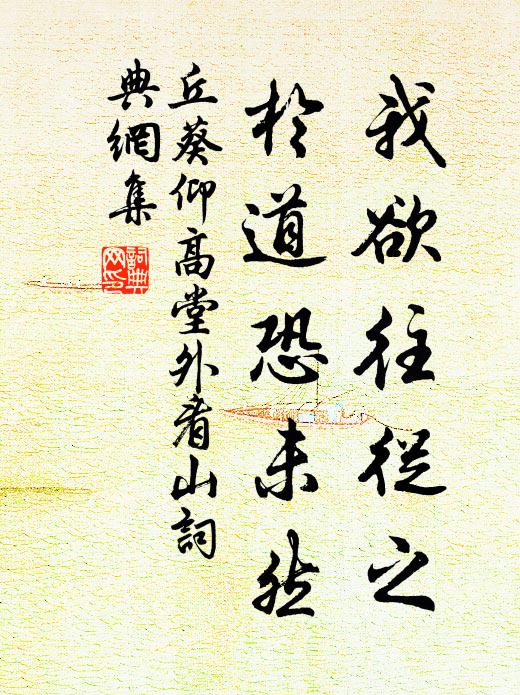 我欲往從之
於道恐未然
丘葵仰高堂外看山詞
典網集
詞典
网印